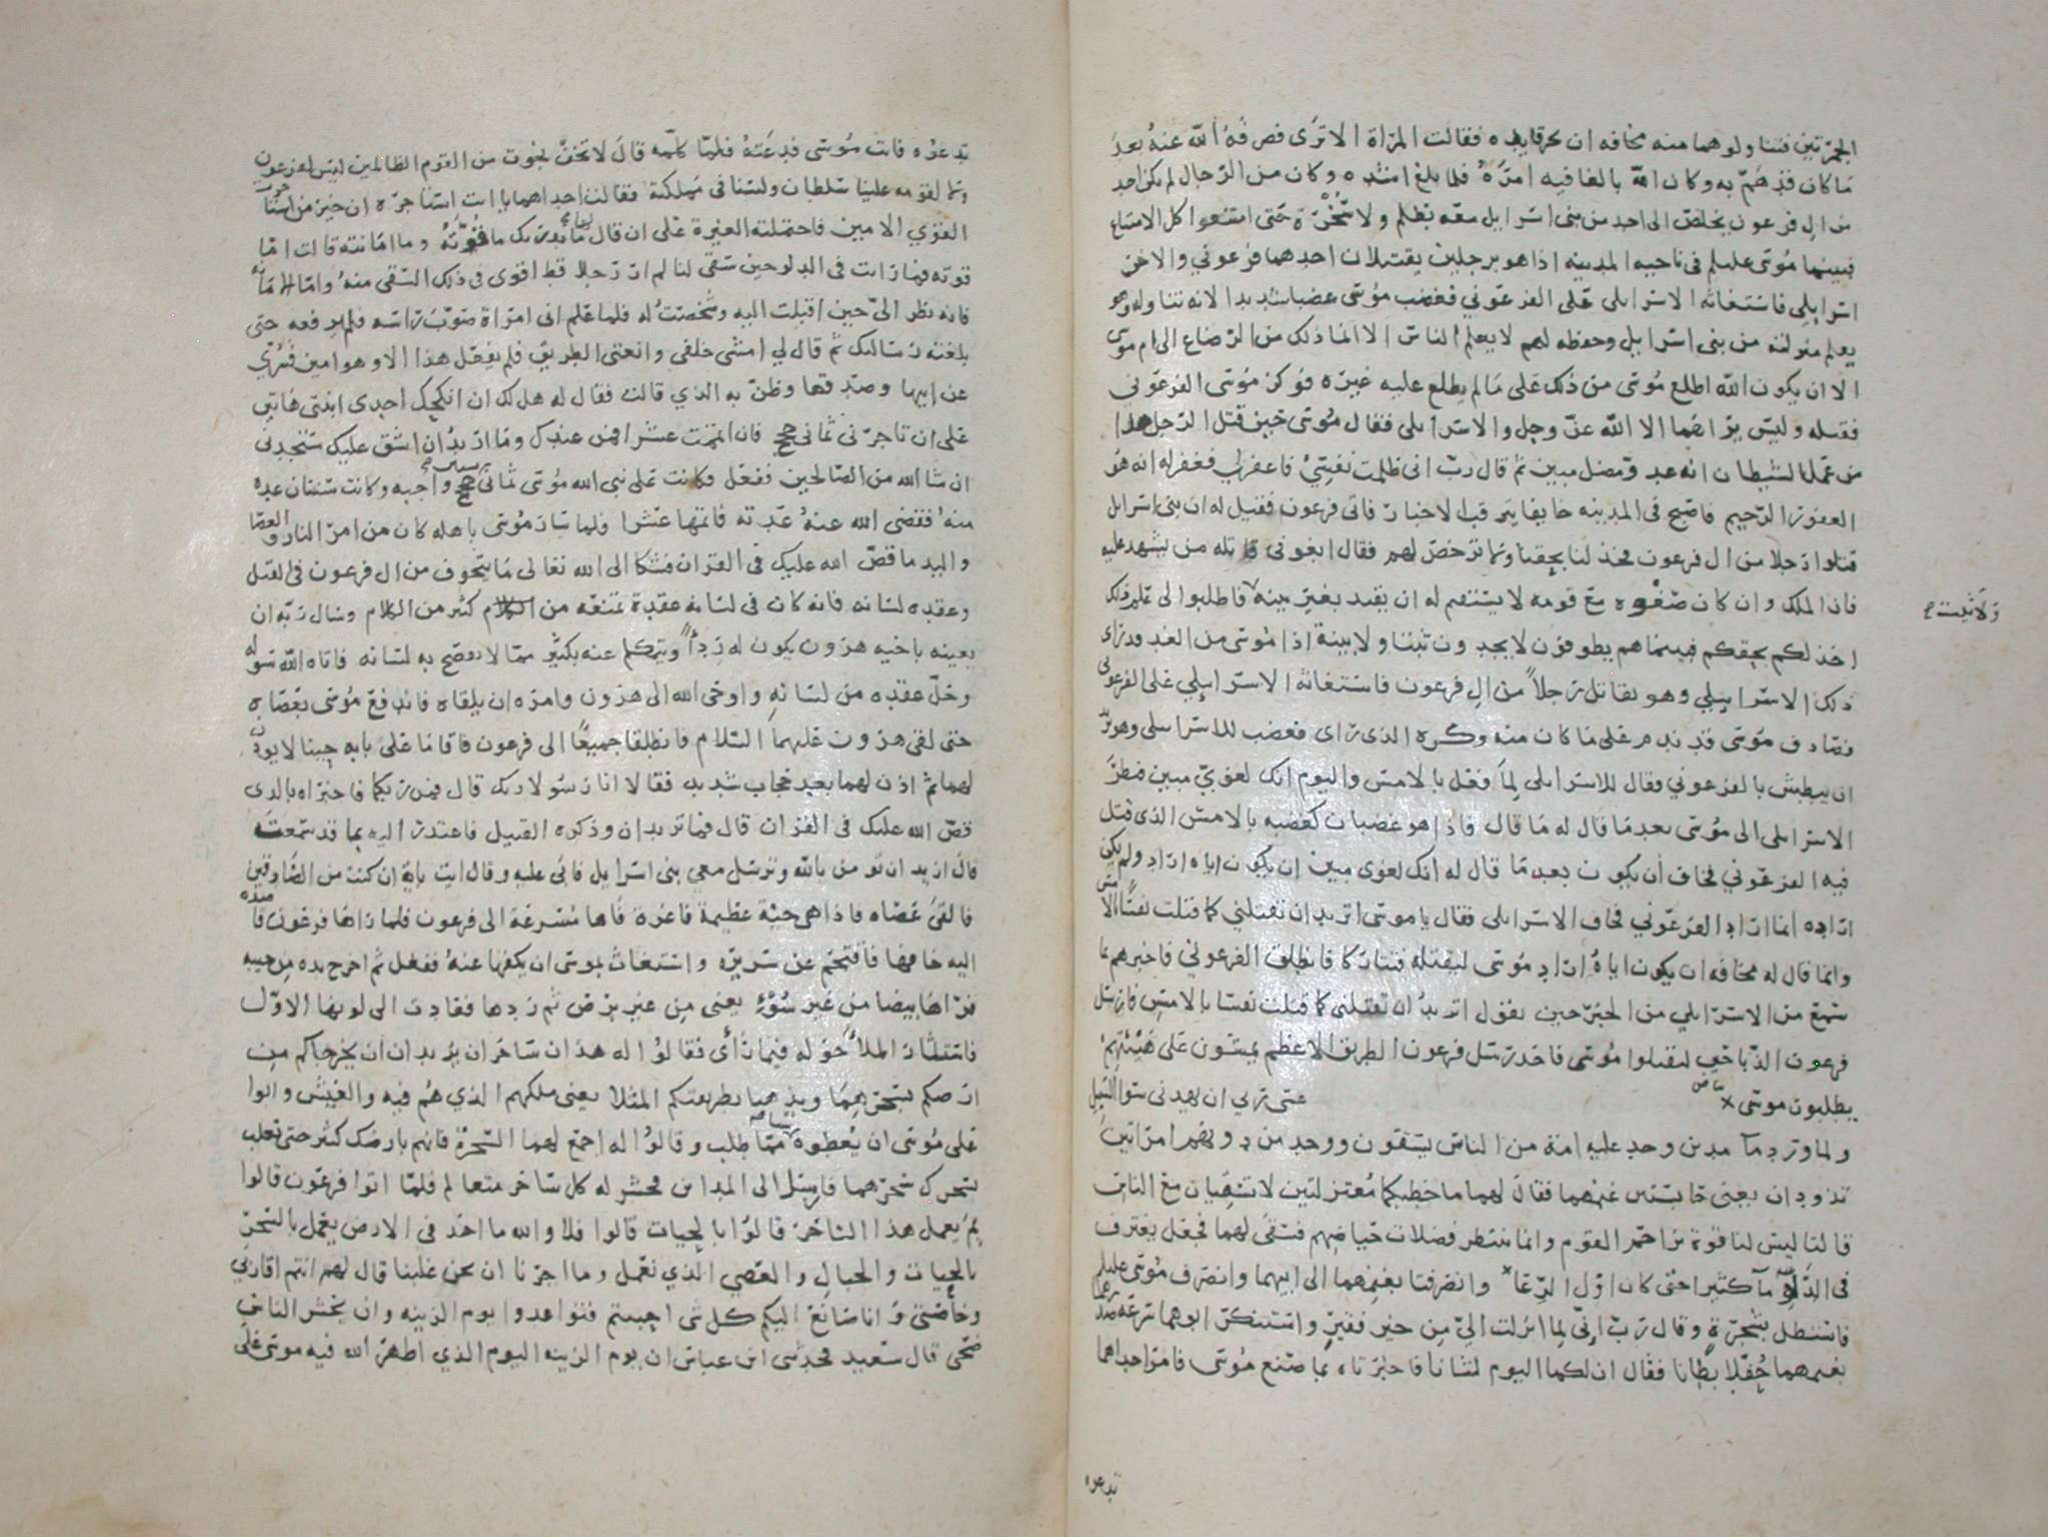 الجمرتين فتناولوهما منه مخافه ان يحرقا يده فقالت المرأة الا ترى فصرفه الله عنه بعد
ما كان قد هم به وكان الله بالغا فيه امره فلما بلغ اشده وكان من الرجال لم يكن احد
من ال فرعون يخلص الى احد من بنى اسرايل معه بظلم ولا سخرة حتى امتنعوا كل الامتناع
فبينما موسى عليلم فى ناحيه المدينه اذا هو برجلين يقتتلان احدهما فرعوني والاخر
اسرايلي فاستغاثه الاسرايلى على الفرعوني فغضب موسى غضبا شديدا لانه تناوله وهو
يعلم منزلته من بنى اسرايل وحفظه لهم لا يعلم الناس الا انما ذلك من الرضاع الا ام موسى
الا ان يكون الله اطلع موسى من ذلك على ما لم يطلع عليه غيره فوكز موسى الفرعوني
فقتله وليس يراهما الا الله عز وجل والاسرايلى فقال موسى حين قتل الرجل هذا
من عمل الشيطان انه عدو مضل مبين ثم قال رب انى ظلمت نفسى فاغفرلى فغفر له انه هو
الغفور الرحيم فاصبح فى المدينه خايفا يترقب الاخبار فاتى فرعون فقيل له ان بنى اسرايل
قتلوا رجلا من ال فرعون فخذ لنا بحقنا ولا ترخص لهم فقال ابغونى قاتله من يشهد عليه
فان الملك وان كان صفوه مع قومه لا يستقيم له ان يقيد بغير بينه فاطلبوا لى علم ذلك
ولا ثبت صح
اخذ لكم بحقكم فبينما هم يطوفون لا يجدون ثبتا ولا بينة اذا موسى من الغد قد راى
ذلك الاسراييلي وهو يقاتل رجلا من ال فرعون فاستغاثه الاسراييلي على الفرعونى
فصادف موسى قد ندم على ما كان منه وكره الذى راى فغضب للاسرايلى وهو يريد
ان يبطش بالفرعوني فقال للاسرايلى لما فعل بالامس واليوم انك لغوي مبين فنظر
الاسرايلى الى موسى بعد ما قال له ما قال فاذا هو غضبان كغضبه بالامس الذى قتل
فيه الفرعوني فخاف أن يكون بعد ما قال له انك لغوى مبين ان يكون اياه اراد ولم يكن
اراده انما اراد الفرعوني فخاف الاسرايلى فقال يا موسى اتريد ان تقتلني كما قتلت نفسا بالامس
وانما قال له مخافه ان يكون اياه اراد موسى ليقتله فتتاركا فانطلق الفرعوني فاخبرهم بما
سمع من الاسرايلي من الخبر حين يقول اتريد ان تقتلنى كما قتلت نفسا بالامس فارسل
فرعون الذباحين ليقتلوا موسى فاخذ رسل فرعون الطريق الاعظم يمشون على هيئتهم
يطلبون موسى عسى ربي ان يهدنى سوا السبيل
ولما ورد ما مدين وجد عليه امة من الناس يسقون ووجد من دونهم امراتين
تذودان يعنى حابستين غنمهما فقال لهما ما خطبكما معتزلتين لا تسقيان مع الناس
قالتا ليس لنا قوة نزاحم القوم وانما ننتظر فضلات حياضهم فسقى لهما فجعل يغترف
فى الدلو ما كثيرا حتى كان اول الرعا وانصرفتا بغنمهما الى ابيهما وانصرف موسى عليلم
فاستظل بشجرة وقال رب اني لما انزلت الي من خير فقير واستنكر ابوهما سرعة صدرهما
بغنمهما حفلا بطانا فقال ان لكما اليوم لشانا فاخبرتاه بما صنع موسى فامر احداهما
تدعوه
تدعوه فاتت موسى فدعته فلما كلمه قال لا تخف نجوت من القوم الظالمين ليس لفرعون
ولا لقومه علينا سلطان ولسنا فى مملكته فقالت احداهما يا ابت استاجره ان خير من استاجرت
القوي الامين فاحتملته الغيرة على ان قال ما يدريك ما قوته وما امانته قالت اما
قوته فما رايت فى الدلو حين سقى لنا لم ار رجلا قط اقوى فى ذلك السقى منه واما الامانة
فانه نظر الي حين اقبلت اليه وشخصت له فلما علم انى امراة صوب راسه فلم يرفعه حتى
بلغته رسالتك ثم قال لي امشى خلفي وانعتى الطريق فلم يفعل هذا الا وهو امين فسري
عن ابيها وصدقها وظن به الذي قالت فقال له هل لك ان انكحك احدى ابنتى هاتين
على ان تاجرنى ثمانى حجج فان اتممت عشرا فمن عندك وما اريد ان اشق عليك ستجدنى
ان شا الله من الصالحين ففعل فكانت على نبى الله موسى ثمانى حجج واجبه وكانت سنتان عدة
منه فقضى الله عنه عدته فاتمها عشرا فلما سار موسى باهله كان من امر النار والعصا
واليد ما قص الله عليك فى القران فشكا الى الله تعالى ما يتخوف من ال فرعون فى القتل
وعقده لسانه فانه كان فى لسانه عقدة تمنعه من كثير من الكلام وسال ربه ان
يعينه باخيه هرون يكون له ردءا ويتكلم عنه بكثير مما لا يفصح به لسانه فاتاه الله سوله
وحل عقده من لسانه واوحى الله الى هرون وامره ان يلقاه فاندفع موسى بعصاه
حتى لقى هرون عليهما السلام فانطلقا جميعا الى فرعون فاقاما على بابه حينا لا يوذن
لهما ثم اذن لهما بعد حجاب شديد فقالا انا رسولا ربك قال فمن ربكما فاخبراه بالذى
قص الله عليك فى القران قال فما تريدان وذكره القتيل فاعتذر اليه بما قد سمعت
قال اريد ان تومن بالله وترسل معى بنى اسرايل فابى عليه وقال ايت باية ان كنت من الصادقين
فالقى عصاه فاذا هى حية عظيمة فاغرة فاها مسرعة الى فرعون فلما راها فرعون قاصده
اليه خافها فاقتحم عن سريره واستغاث بموسى ان يكفها عنه ففعل ثم اخرج يده من جيبه
فراها بيضا من غير سوء يعنى من غير برص ثم ردها فعادت الى لونها الاول
فاستشار الملأ حوله فيما رأى فقالوا له هذان ساحران يريدان ان يخرجاكم من
ارضكم بسحرهما ويذهبا بطريقتكم المثلا يعنى ملكهم الذي هم فيه والعيش وابوا
على موسى ان يعطوه شيا مما طلب وقالوا له اجمع لهما السحرة فانهم بارضك كثير حتى تغلب
بسحرك سحرهما فارسل الى المداين فحشر له كل ساحر متعالم فلما اتوا فرعون قالوا
بم يعمل هذا الساحر قالوا بالحيات قالوا فلا والله ما احد فى الارض يعمل بالسحر
بالحيات والحبال والعصي الذي نعمل وما اجرنا ان نحن غلبنا قال لهم انتم اقاربي
وخاصتى وانا صانع اليكم كل شى احببتم فتواعدوا يوم الزينه وان يحشر الناس
ضحى قال سعيد فحدثنى ابن عباس ان يوم الزينه اليوم الذي اظهر الله فيه موسى على